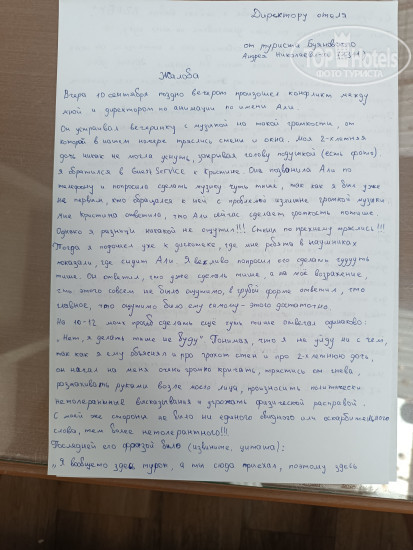 Директору отеля
от туриста Буяновского
Андрея Николаевича
TopHotels
ФОТО ТУРИСТА
Жалоба
Вчера 10 сентября поздно вечером произошел конфликт между
мной и директором по анимации по имени Али.
Он устраивал вечеринку с музыкой на такой громкости, от
которой в нашем номере тряслись стены и окна. Моя 2-хлетняя
дочь никак не могла уснуть, закрывая голову подушкой (есть фото).
Я обратился в Guest SERVICE к Кристине. Она позвонила Али по
телефону и попросила сделать музыку чуть тише, так как я был уже
не первым, кто обращался к ней с проблемой излишне громкой музыки.
Мне Кристина ответила, что Али сейчас сделает громкость потише.
Однако я разницы никакой не ощутил!!! Стены по прежнему тряслись!!!
Тогда я подошел уже к дискотеке, где мне ребята в наушниках
показали, где сидит Али. Я вежливо попросил его сделать
тише. Он ответил, что уже сделал тише, а на моё возражение,
что этого совсем не было ощутимо, в грубой форме ответил, что
главное, что ощутимо было ему самому - этого достаточно.
На 10-12 моих просьб сделать еще чуть тише отвечал одинаково:
"Нет, я делать тише не буду". Понимая, что я не уйду ни с чем,
так как я ему объяснял и про грохот стен и про 2-хлетнюю дочь,
он начал на меня очень громко кричать, трястись от гнева,
размахивать руками возле моего лица, произносить политически
нетолерантные высказывания и угрожать физической расправой.
С моей же стороны не было ни единого обидного или оскорбительного
слова, тем более нетолерантного!!!
Последней его фразой было (извините, цитата):
"Я вообще-то здесь турок, а ты сюда приехал, поэтому здесь